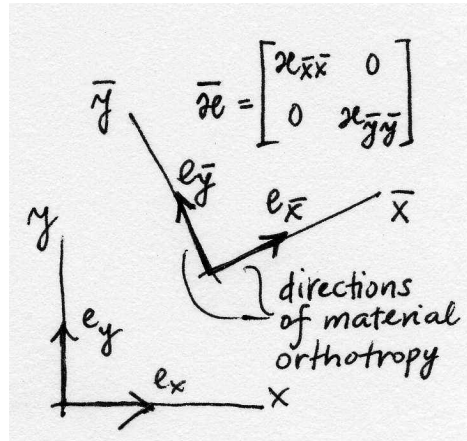 ϰ̄ = [ ϰx̄x̄ 0
0 ϰȳȳ ]
ȳ
eȳ
ex̄
x̄
y
directions
of material
orthotropy
ey
ex
x